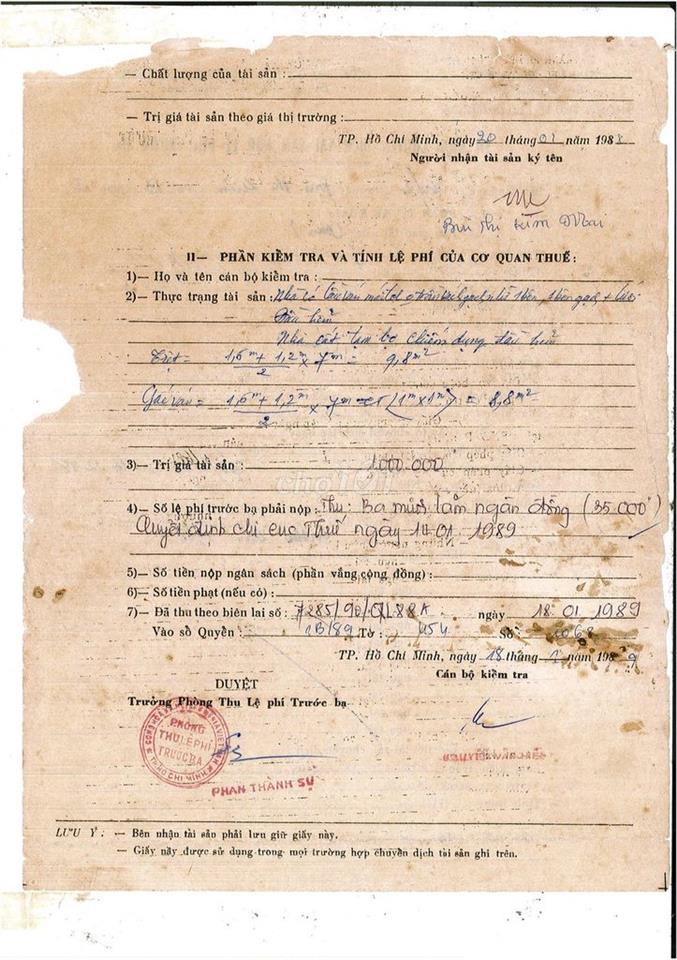 — Chất lượng của tài sản :
— Trị giá tài sản theo giá thị trường :
TP. Hồ Chí Minh, ngày 20 tháng 01 năm 1988
Người nhận tài sản ký tên
Bùi Thị Kim Mai
II— PHẦN KIỂM TRA VÀ TÍNH LỆ PHÍ CỦA CƠ QUAN THUẾ :
1)— Họ và tên cán bộ kiểm tra :
2)— Thực trạng tài sản : Nhà có
Nhà cất tạm bợ chiếm dụng đầu hẻm
Trệt = 1,6m + 1,2m / 2 × 7m = 9,8m²
Gác ván = 1,6m + 1,2m / 2 × 7m (1m × 1m) = 8,8m²
3)— Trị giá tài sản : 1000.000
4)— Số lệ phí trước bạ phải nộp : Thu: Ba mươi lăm ngàn đồng (35.000đ)
Quyết định chi cục Thuế ngày 01 1989
5)— Số tiền nộp ngân sách (phần vắng cộng đồng) :
6)— Số tiền phạt (nếu có) :
7)— Đã thu theo biên lai số : 7285/90/QL88A ngày 18 01 1989
Vào sổ Quyển : 1B/89 Tờ : 454 Số : 1068
TP. Hồ Chí Minh, ngày 18 tháng 1 năm 1989
Cán bộ kiểm tra
DUYỆT
Trưởng Phòng Thu Lệ phí Trước bạ
PHÒNG
THU LỆ PHÍ
TRƯỚC BẠ
TP. HỒ CHÍ MINH
PHAN THÀNH SỰ
chợ TỐT
LƯU Ý : — Bên nhận tài sản phải lưu giữ giấy này.
— Giấy nầy được sử dụng trong mọi trường hợp chuyển dịch tài sản ghi trên.